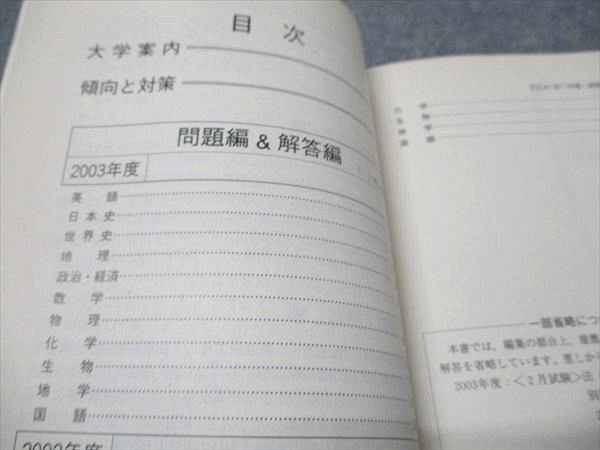 目次
大学案内
傾向と対策
問題編 & 解答編
2003年度
英語
日本史
世界史
地理
政治・経済
数学
物理
化学
生物
地学
国語
2002年度
化学
生物
地学
国語
一部省略につ
本書では、編集の都合上、推薦
解答を省略しています。悪しから
2003年度:<2月試験>法
別